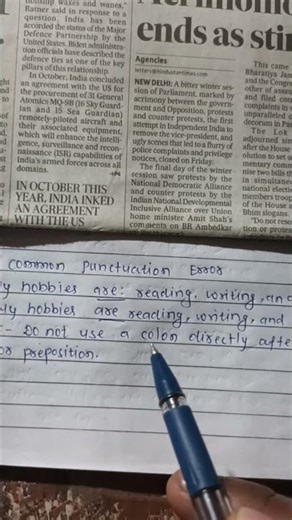 nonship waxes and wanes,"
Ratner said in response to a
question. India has been
accorded the status of the Major
Defence Partnership by the
United States. Biden administra-
tion officials have described the
defence ties as one of the key
pillars of this relationship.
In October, India concluded
an agreement with the US for
the procurement of 31 General
Atomics MQ-9B (16 Sky Guard-
ian and 15 Sea Guardian)
remotely-piloted aircraft and
their associated equipment,
which will enhance the intelli-
gence, surveillance and recon-
naissance (ISR) capabilities of
India's armed forces across all
domains.
IN OCTOBER THIS
YEAR, INDIA INKED
AN AGREEMENT
WITH THE US
ends as sti
Agencies
letters@hindustantimes.com
NEW DELHI: A bitter winter ses-
sion of Parliament, marked by
acrimony between the govern-
ment and Opposition, protests
and counter protests, the first
attempt in Independent India to
remove the vice-president, and
ugly scenes that led to a flurry of
police complaints and privilege
notices, closed on Friday.
The final day of the winter
session saw protests by the
National Democratic Alliance
and counter protests by the
Indian National Developmental
Inclusive Alliance over Union
home minister Amit Shah's
comments on BR Ambedkar
This came
Bharatiya Jan
and the Congre
other of assau
filed
complaints in
unparalleled
decorum in Pa
The Lok
adjourned
after the House
olution to set
mentary comm
nise two bills th
in simultane
national electi
members troop
of the House a
Bhim slogans.
"Do not reso
tion or protes
Common Punctuation Error
My hobbies are: reading, writing, an
My hobbies are reading, writing, and
:- Do not use a colon directly afte
or preposition.